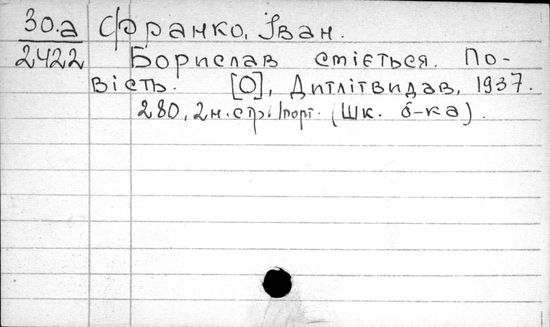 30.а Франко, Іван.
2422 Борислав сміється. По-
вість. [О], Дитлітвидав, 1937.
280, 2 н. стр. 1 порт. (Шк. б-ка).